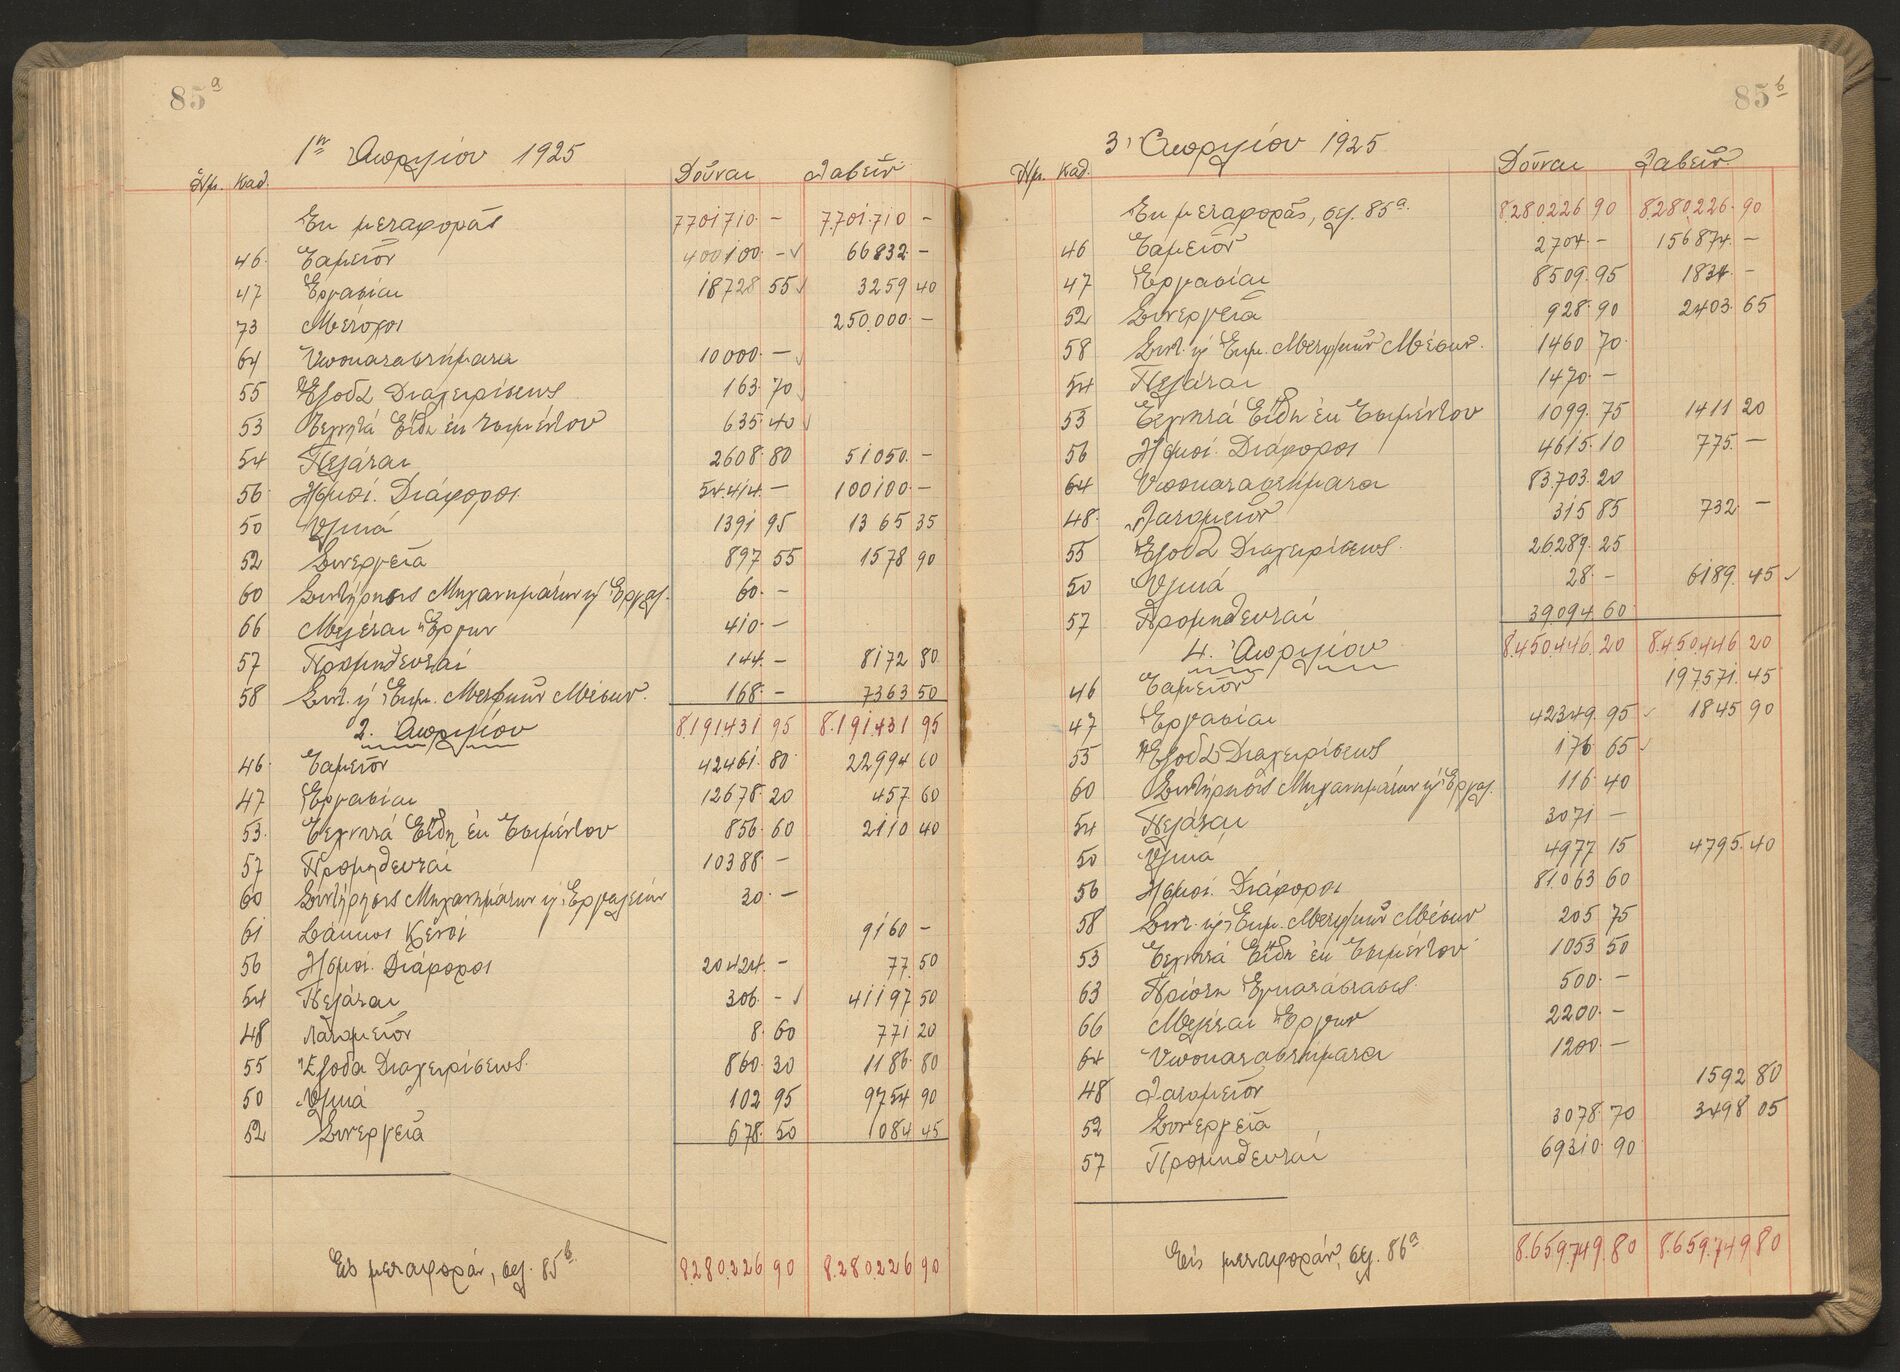 85α
1η Απριλίου 1925
Ημ. Καθ. Δοῦναι Λαβεῖν
Ἐκ μεταφορᾶς 7701710 - 7.701.710 -
46 Ταμεῖον 400100 - 66832 -
47 Ἐργασίαι 18728 55 3259 40
73 Μέτοχοι 250.000 -
64 Ὑποκαταστήματα 10000 -
55 Ἔξοδα Διαχειρίσεως 163 70
53 Τεχνητά Εἴδη ἐκ τσιμέντου 635 40
54 Πελάται 2608 80 51050 -
56 Λ/σμοί Διάφοροι 54.414 - 100100 -
50 Ὑλικά 1391 95 1365 35
52 Συνεργεῖα 897 55 1578 90
60 Συντήρησις Μηχανημάτων κ' Ἐργαλ. 60 -
66 Μελέται Ἔργων 410 -
57 Προμηθευταί 144 - 8172 80
58 Συντ. κ' Ἐκμ. Μεταφ/κῶν Μέσων. 168 - 7363 50
8.191.431 95 8.191.431 95
2. Ἀπριλίου
46 Ταμεῖον 42461 80 22994 60
47 Ἐργασίαι 12678 20 457 60
53 Τεχνητά Εἴδη ἐκ Τσιμέντου 856 60 2110 40
57 Προμηθευταί 10388 -
60 Συντήρησις Μηχανημάτων κ' Ἐργαλείων 30 -
61 Σάκκοι Κενοί 9160 -
56 Λ/σμοί Διάφοροι 20424 - 77 50
54 Πελάται 306 - 41197 50
48 Λατομεῖον 8 60 771 20
55 Ἔξοδα Διαχειρίσεως 860 30 1186 80
50 Ὑλικά 102 95 9754 90
52 Συνεργεῖα 678 50 1084 45
Εἰς μεταφοράν, σελ. 85b 8.280.226 90 8.280.226 90
85b
3 Ἀπριλίου 1925
Ημ. Καθ. Δοῦναι Λαβεῖν
Ἐκ μεταφορᾶς, σελ. 85α 8.280.226 90 8.280.226 90
46 Ταμεῖον 2704 - 156874 -
47 Ἐργασίαι 8509 95 1834 -
52 Συνεργεῖα 928 90 2403 65
58 Συντ. κ' Ἐκμ. Μεταφ/κῶν Μέσων 1460 70
54 Πελάται 1470 -
53 Τεχνητά Εἴδη ἐκ Τσιμέντου 1099 75 1411 20
56 Λ/σμοί Διάφοροι 4615 10 775 -
64 Ὑποκαταστήματα 83.703 20
48 Λατομεῖον 315 85 732 -
55 Ἔξοδα Διαχειρίσεως 26.289 25
50 Ὑλικά 28 - 6189 45
57 Προμηθευταί 39094 60
8.450.446 20 8.450.446 20
4. Ἀπριλίου
46 Ταμεῖον 197571 45
47 Ἐργασίαι 42349 95 1845 90
55 Ἔξοδα Διαχειρίσεως 176 65
60 Συντήρησις Μηχανημάτων κ' Ἐργαλ. 116 40
54 Πελάται 3071 -
50 Ὑλικά 4977 15 4795 40
56 Λ/σμοί Διάφοροι 81.063 60
58 Συντ. κ' Ἐκμ. Μεταφ/κῶν Μέσων 205 75
53 Τεχνητά Εἴδη ἐκ Τσιμέντου 1053 50
63 Πρώτη Ἐγκατάστασις 500 -
66 Μελέται Ἔργων 2200 -
64 Ὑποκαταστήματα 1200 -
48 Λατομεῖον 1592 80
52 Συνεργεῖα 3078 70 3498 05
57 Προμηθευταί 69310 90
Εἰς μεταφοράν, σελ. 86α 8.659.749 80 8.659.749 80